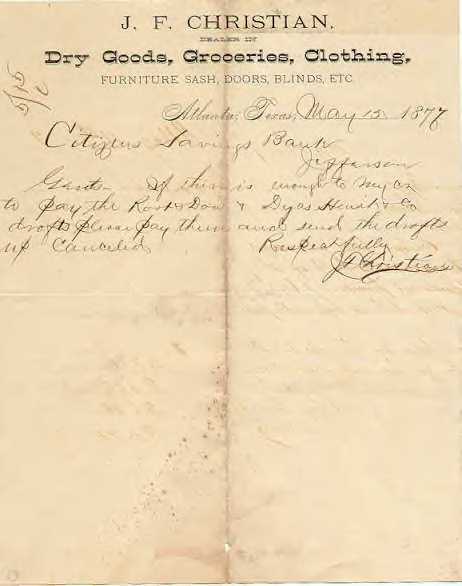 J. F. CHRISTIAN,
DEALER IN
Dry Goods, Groceries, Clothing,
FURNITURE SASH, DOORS, BLINDS, ETC.
5/15
Atlanta, Texas, May 15 1877
Citizens Savings Bank
Jefferson
Gents If there is enough to my cr
to pay the & Dyas & Co
drafts please pay them and send the drafts
up Canceled Respectfully
J F Christian